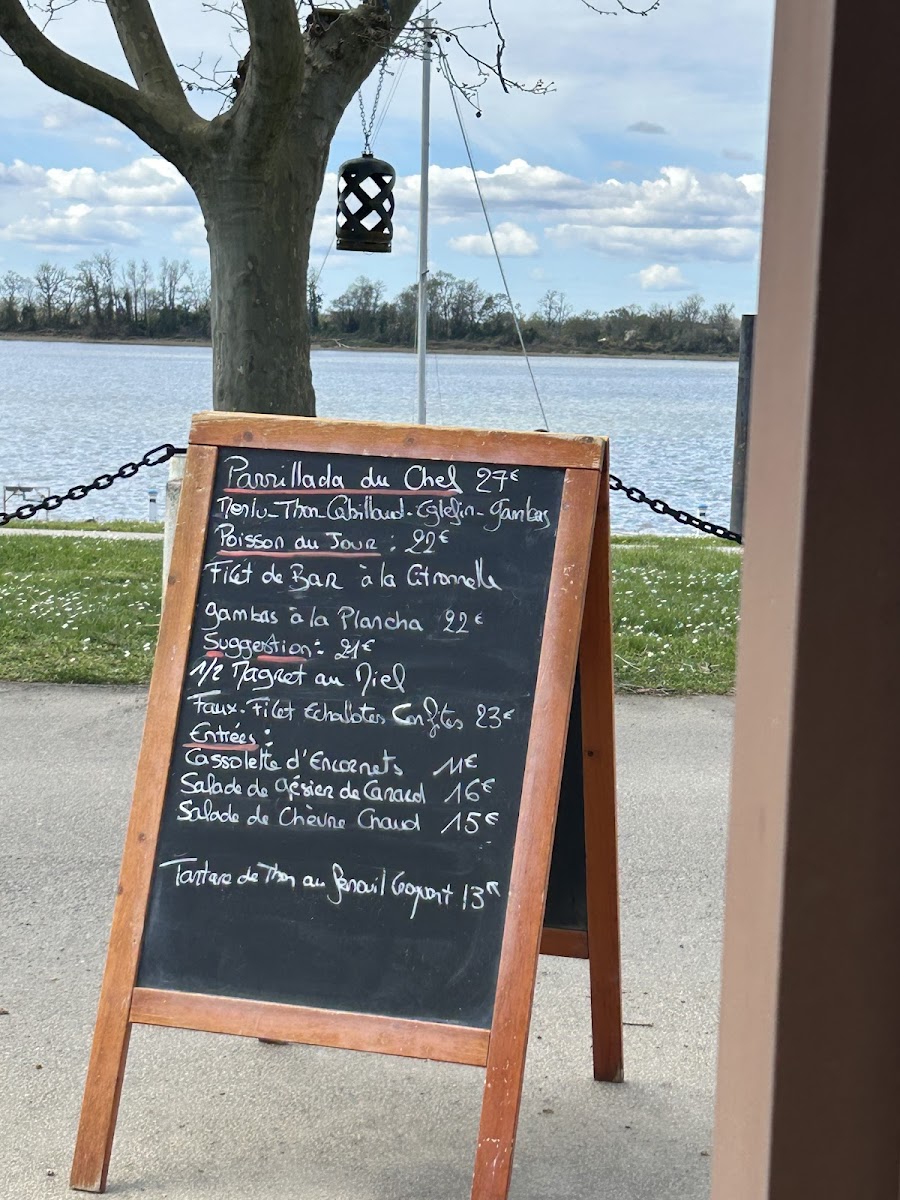 Parrillada du Chef 27€
Merlu-Thon-Cabillaud-Eglefin-Gambas
Poisson du Jour : 22€
Filet de Bar à la Citronnelle
Gambas à la Plancha 22€
Suggestion: 21€
1/2 Magret au Miel
Faux-Filet Echallotes Confites 23€
Entrées:
Cassolette d'Encornets 11€
Salade de Gésier de Canard 16€
Salade de Chèvre Chaud 15€
Tartare de Thon au fenouil Croquant 13€